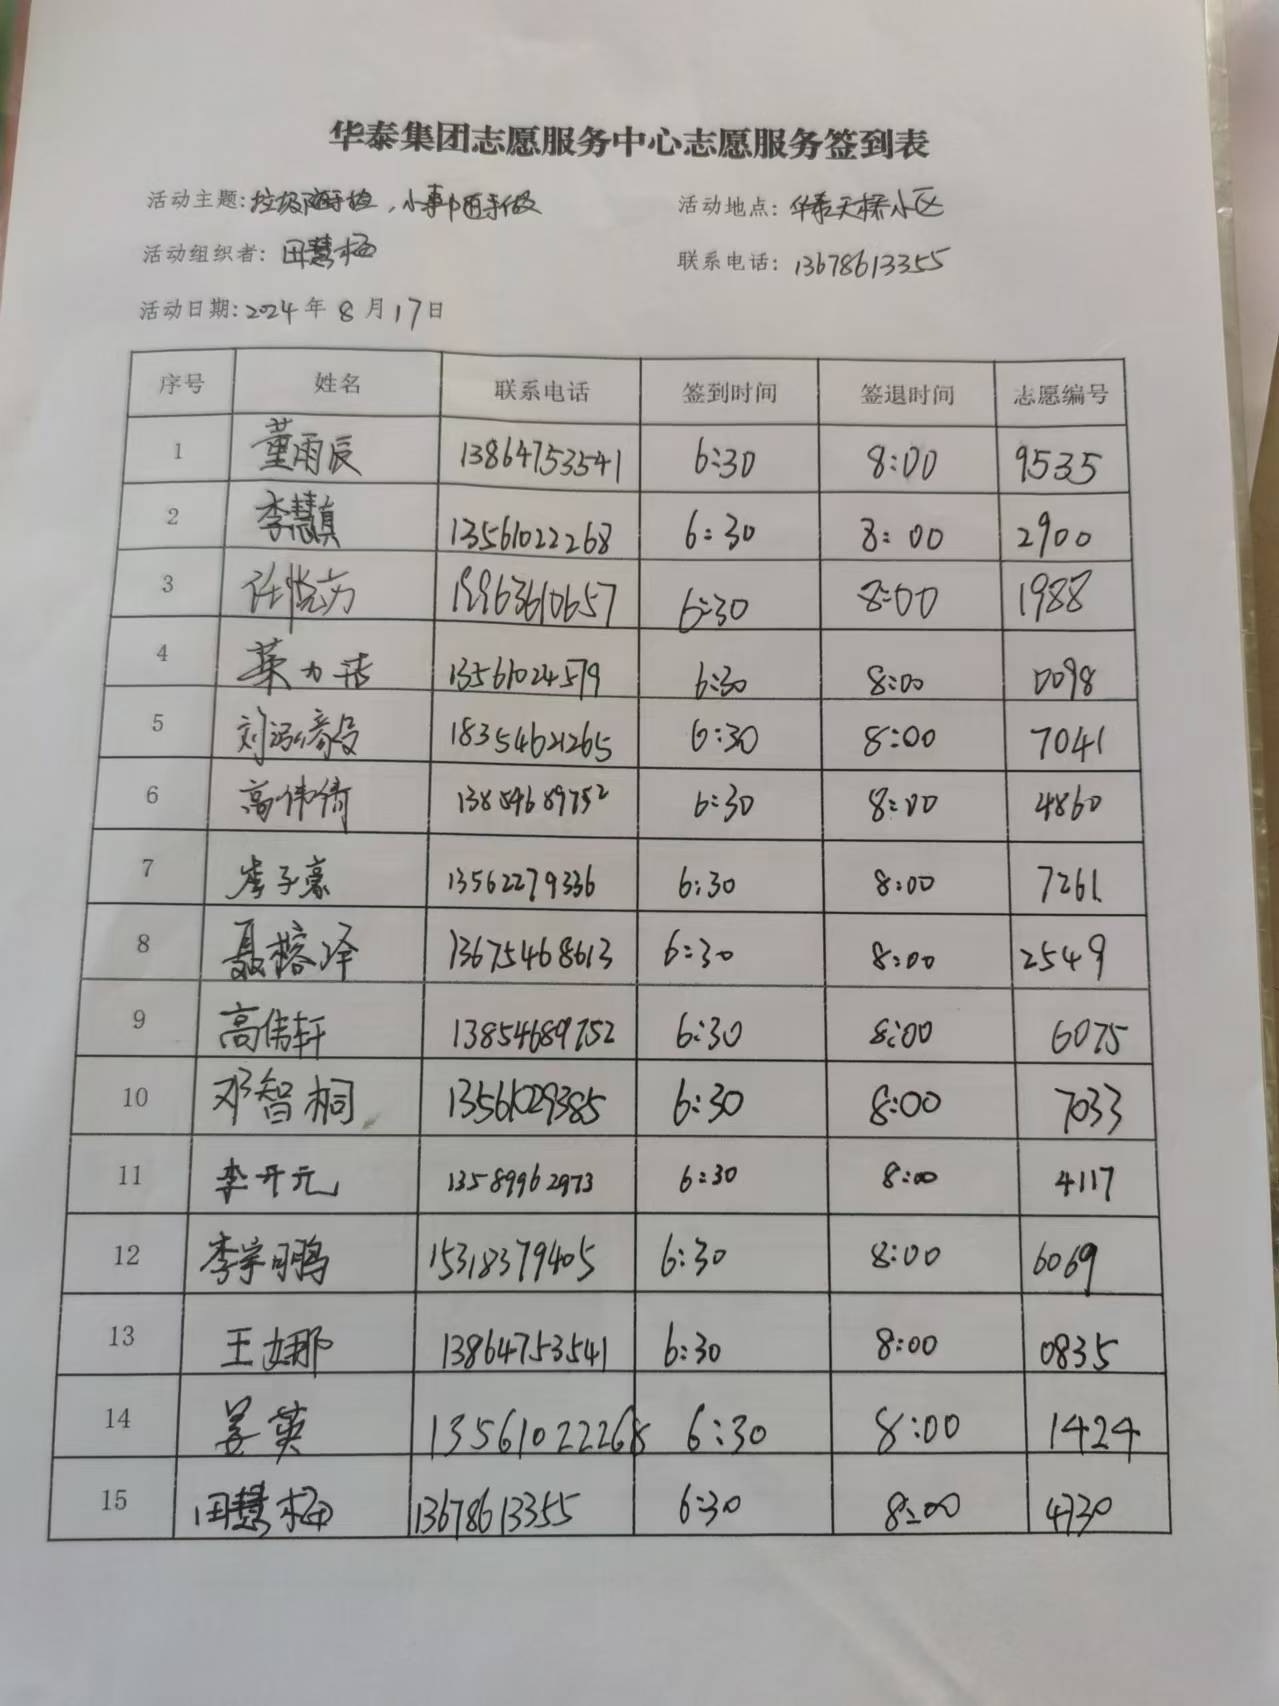 华泰集团志愿服务中心志愿服务签到表
活动主题:垃圾随手捡,小事随手做 活动地点:华泰天桥小区
活动组织者:田慧梅 联系电话:13678613355
活动日期:2024年8月17日
序号 姓名 联系电话 签到时间 签退时间 志愿编号
1 董雨辰 13864753541 6:30 8:00 9535
2 李慧真 13561022268 6:30 8:00 2900
3 任悦为 19963610657 6:30 8:00 1988
4 13561024579 6:30 8:00 0098
5 18354621265 6:30 8:00 7041
6 高伟倚 13854689752 6:30 8:00 4860
7 李子豪 13562279336 6:30 8:00 7261
8 聂榕泽 13675468613 6:30 8:00 2549
9 高伟轩 13854689752 6:30 8:00 6075
10 邓智桐 13561029385 6:30 8:00 7033
11 李开元 13589962973 6:30 8:00 4117
12 李宇鹏 15318379405 6:30 8:00 6069
13 王娜 13864753541 6:30 8:00 0835
14 姜英 13561022268 6:30 8:00 1424
15 田慧梅 13678613355 6:30 8:00 4730